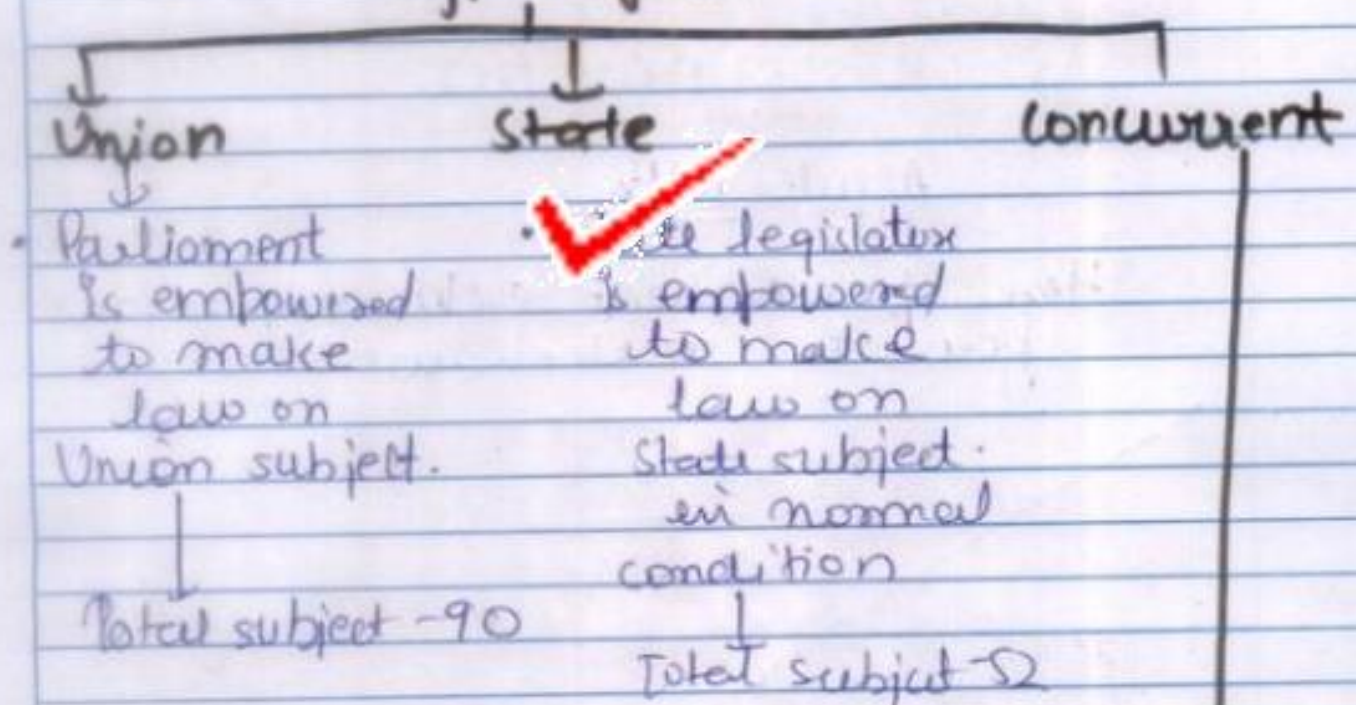 Union
State
Concurrent
Parliament
is empowered
to make
law on
Union subject.
Total subject - 90
legislature
is empowered
to make
law on
State subject.
in normal
condition
Total subject